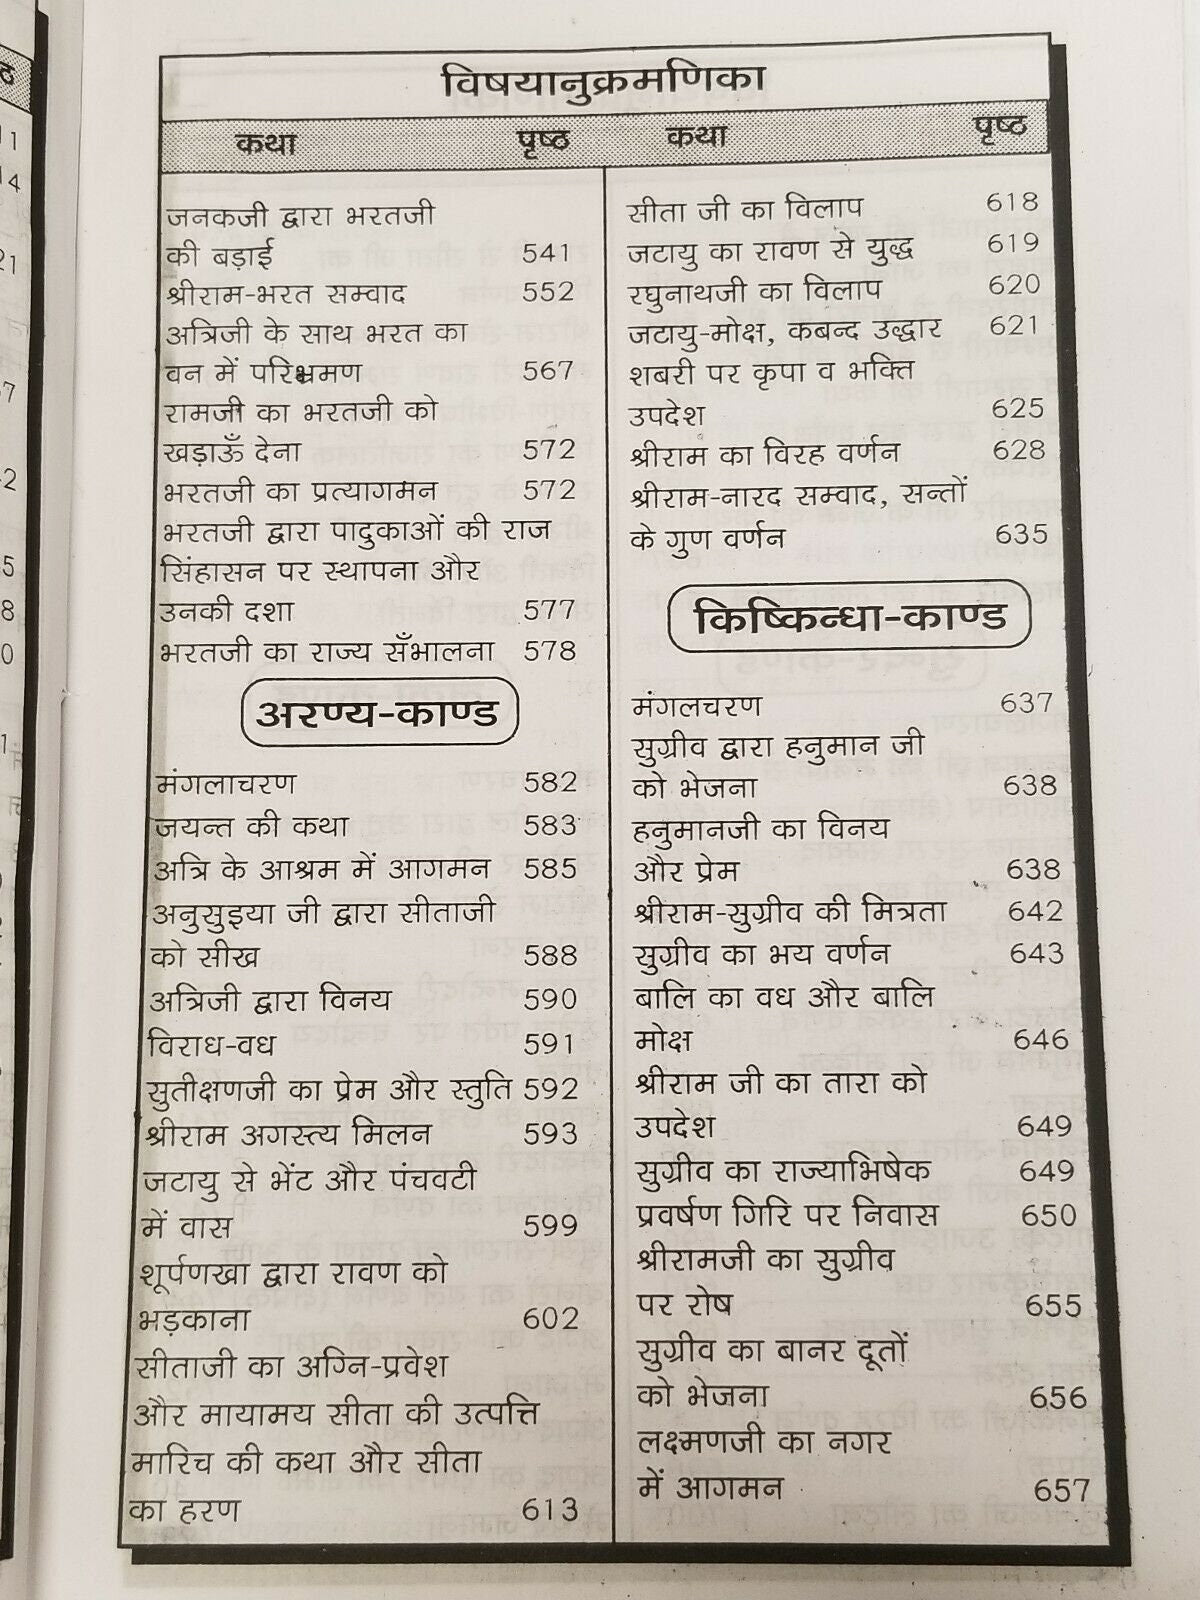 विषयानुक्रमणिका
कथा पृष्ठ कथा पृष्ठ
जनकजी द्वारा भरतजी
की बड़ाई 541
श्रीराम-भरत सम्वाद 552
अत्रिजी के साथ भरत का
वन में परिभ्रमण 567
रामजी का भरतजी को
खड़ाऊँ देना 572
भरतजी का प्रत्यागमन 572
भरतजी द्वारा पादुकाओं की राज
सिंहासन पर स्थापना और
उनकी दशा 577
भरतजी का राज्य सँभालना 578
अरण्य-काण्ड
मंगलाचरण 582
जयन्त की कथा 583
अत्रि के आश्रम में आगमन 585
अनुसुइया जी द्वारा सीताजी
को सीख 588
अत्रिजी द्वारा विनय 590
विराध-वध 591
सुतीक्षणजी का प्रेम और स्तुति 592
श्रीराम अगस्त्य मिलन 593
जटायु से भेंट और पंचवटी
में वास 599
शूर्पणखा द्वारा रावण को
भड़काना 602
सीताजी का अग्नि-प्रवेश
और मायामय सीता की उत्पत्ति
मारिच की कथा और सीता
का हरण 613
सीता जी का विलाप 618
जटायु का रावण से युद्ध 619
रघुनाथजी का विलाप 620
जटायु-मोक्ष, कबन्द उद्धार 621
शबरी पर कृपा व भक्ति
उपदेश 625
श्रीराम का विरह वर्णन 628
श्रीराम-नारद सम्वाद, सन्तों
के गुण वर्णन 635
किष्किन्धा-काण्ड
मंगलचरण 637
सुग्रीव द्वारा हनुमान जी
को भेजना 638
हनुमानजी का विनय
और प्रेम 638
श्रीराम-सुग्रीव की मित्रता 642
सुग्रीव का भय वर्णन 643
बालि का वध और बालि
मोक्ष 646
श्रीराम जी का तारा को
उपदेश 649
सुग्रीव का राज्याभिषेक 649
प्रवर्षण गिरि पर निवास 650
श्रीरामजी का सुग्रीव
पर रोष 655
सुग्रीव का बानर दूतों
को भेजना 656
लक्ष्मणजी का नगर
में आगमन 657